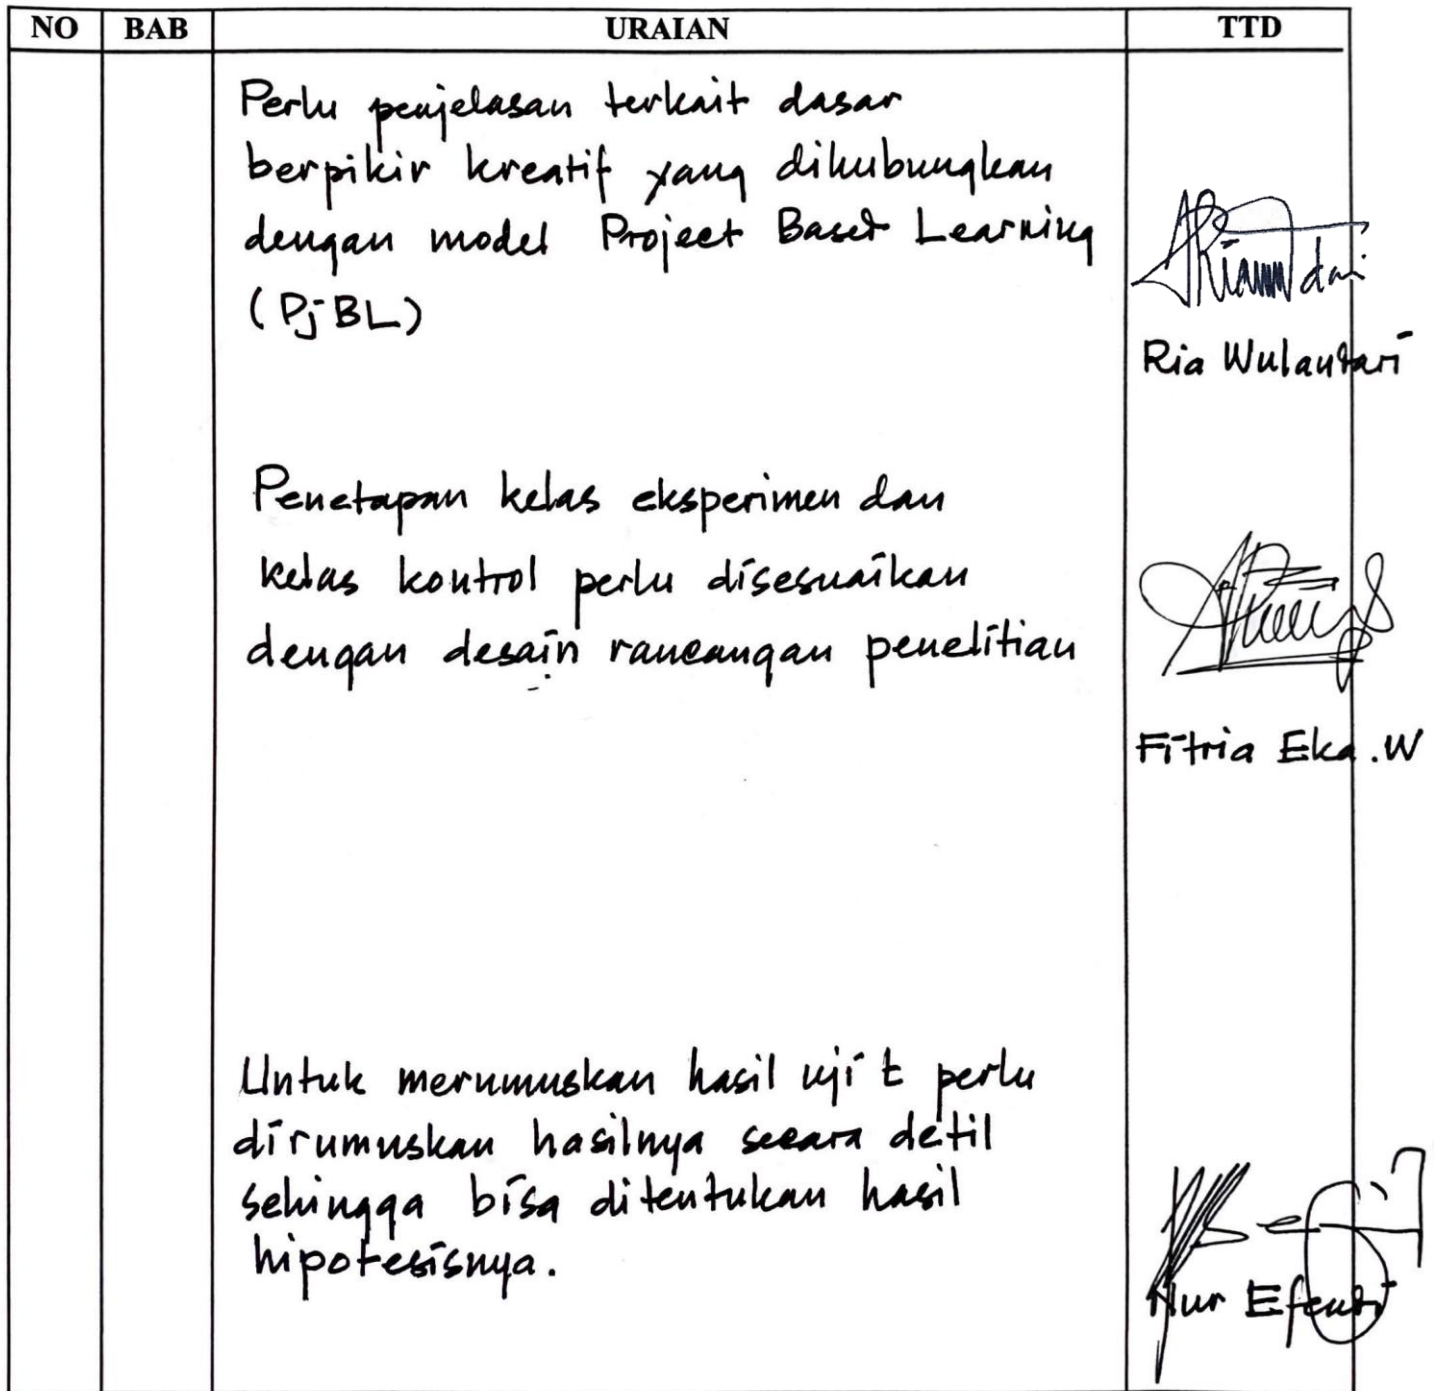 NO BAB URAIAN TTD
Perlu penjelasan terkait dasar
berpikir kreatif yang dihubungkan
dengan model Project Baset Learning
(PjBL)
Ria Wulandari
Penetapan kelas eksperimen dan
kelas kontrol perlu disesuaikan
dengan desain rancangan penelitian
Fitria Eka.W
Untuk merumuskan hasil uji t perlu
dirumuskan hasilnya secara detil
sehingga bisa ditentukan hasil
hipotesisnya.
Nur Efendi